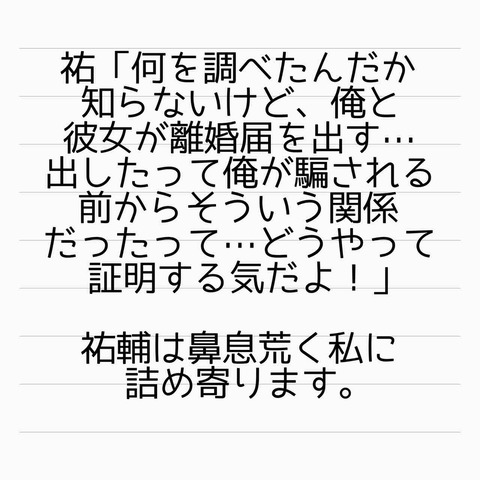 祐「何を調べたんだか
知らないけど、俺と
彼女が離婚届を出す…
出したって俺が騙される
前からそういう関係
だったって…どうやって
証明する気だよ！」
祐輔は鼻息荒く私に
詰め寄ります。